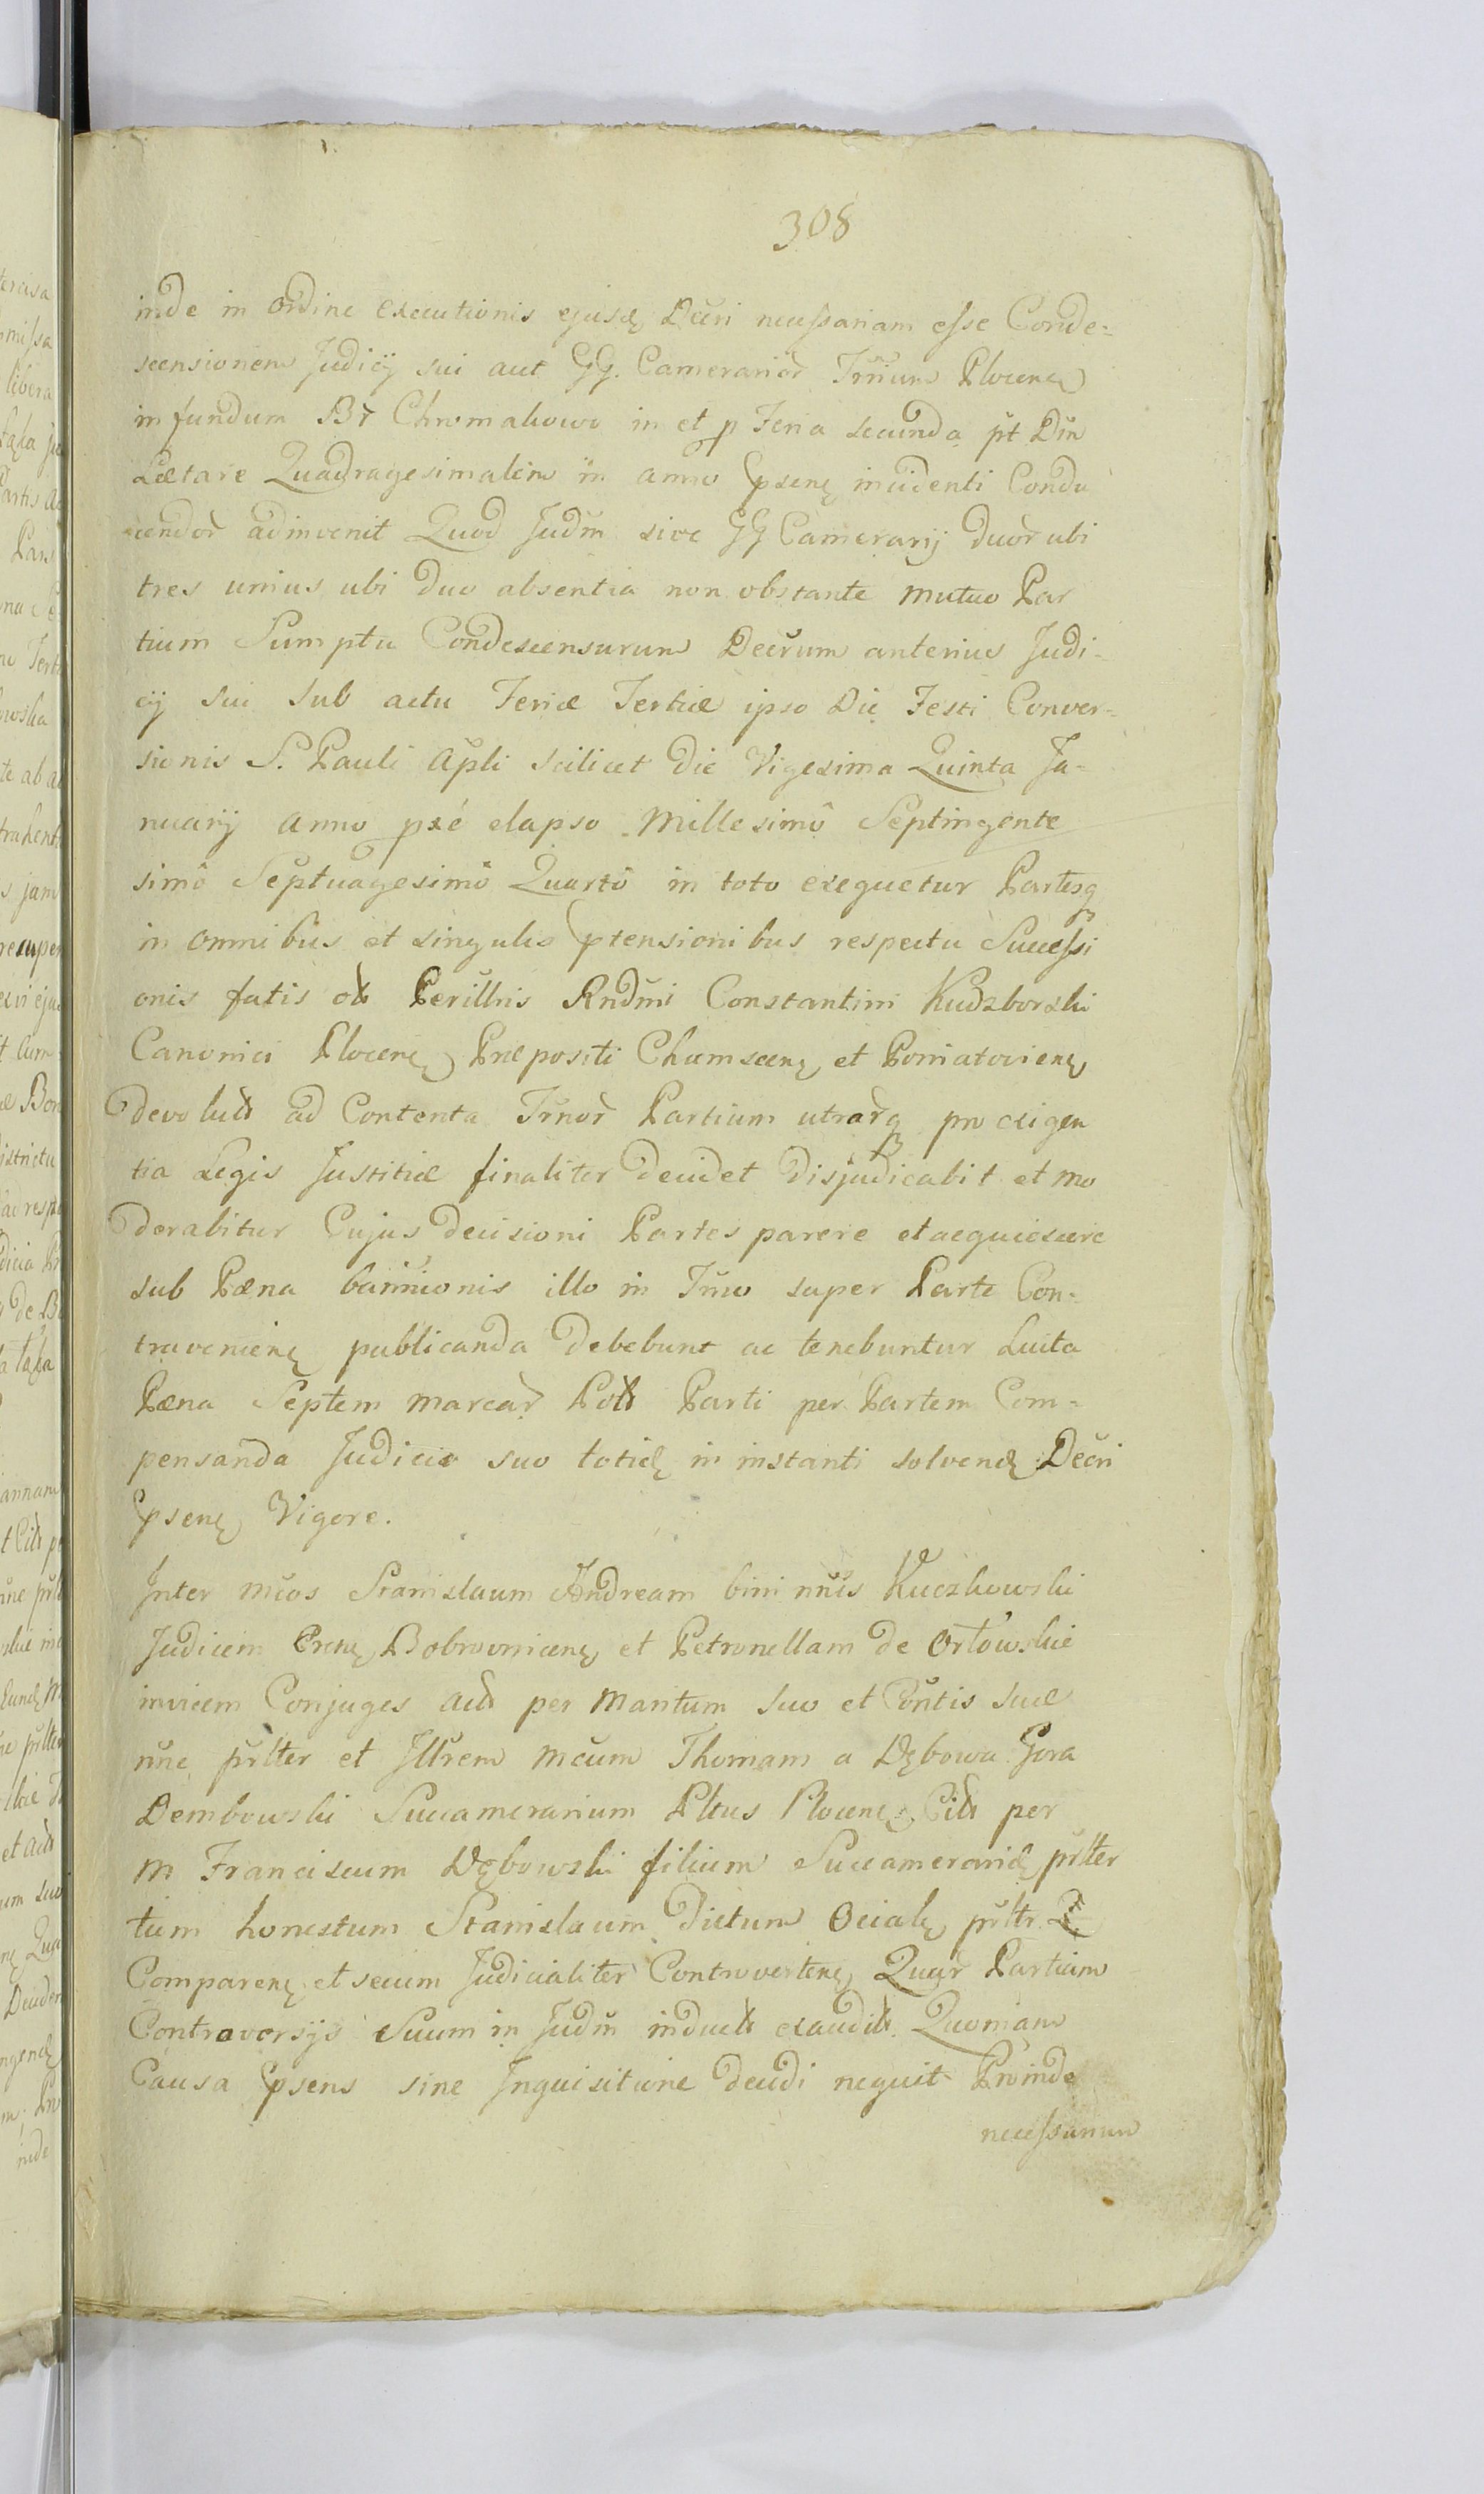 308
inde in Ordine Executionis ejusd Decri necessariam esse Conde-
scensionem Judicij sui aut GG. Camerarior Trrium Plocen
in fundum Br Chromakowo in et p Feria secunda pt Dm
Lætare Quadragesimalem in anno psenę incidenti Condu
cendor adinvenit Quod Judm sive GG Camerarij duor ubi
tres unius ubi duo absentia non obstante mutuo Par
tium Sumptu Condescensurum Decrum anterius Judi-
cij sui sub actu Feriæ Tertiæ ipso Die Festi Conver-
sionis S. Pauli Apli scilicet die Vigesima Quinta Ja-
nuarij Anno pxe elapso Millesimô Septingente
simô Septuagesimô Quartô in toto exequetur Partesq
in omnibus et singulis ptensionibus respectu Successi
onis fatis olt Perillris Rndmi Constantini Kudzborski
Canonici Plocenę Præpositi Chumscenę et Poniatovienę
devolut ad Contenta Trnor Partium utrarq pro exigen
tia Legis Justitiæ finaliter decidet Disjudicabit et mo
derabitur Cujus decisioni Partes parere et acquiescere
sub Pæna bannionis illo in Trno super Parte Con-
travenienę publicanda debebunt ac tenebuntur Luita
Pæna Septem marcar Pol Parti per Partem Com-
pensanda Judicio suo totid in instanti solvend Decri
psenę Vigore.
Inter mcos Stanislaum Andream bini nnis Kuczkowski
Judicem Crenę Bobrovnicenę et Petronellam de Orłowskie
invicem Conjuges act per maritum suo et Contis suæ
nne prlter et Jllrem mcum Thomam a Dębowa Gora
Dembowski Succamerarium Pltus Plocenę Cit per
m Franciscum Dębowski filium Succamerarid prlter
tum honestum Stanislaum dictum Ocialę prltr
Comparenę et secum Judicialiter Controvertenę Quar Partium
Controversijs Suum in Judm induct exaudit Quoniam
Causa psens sine Inquisitione decidi nequit Proinde
necessarium